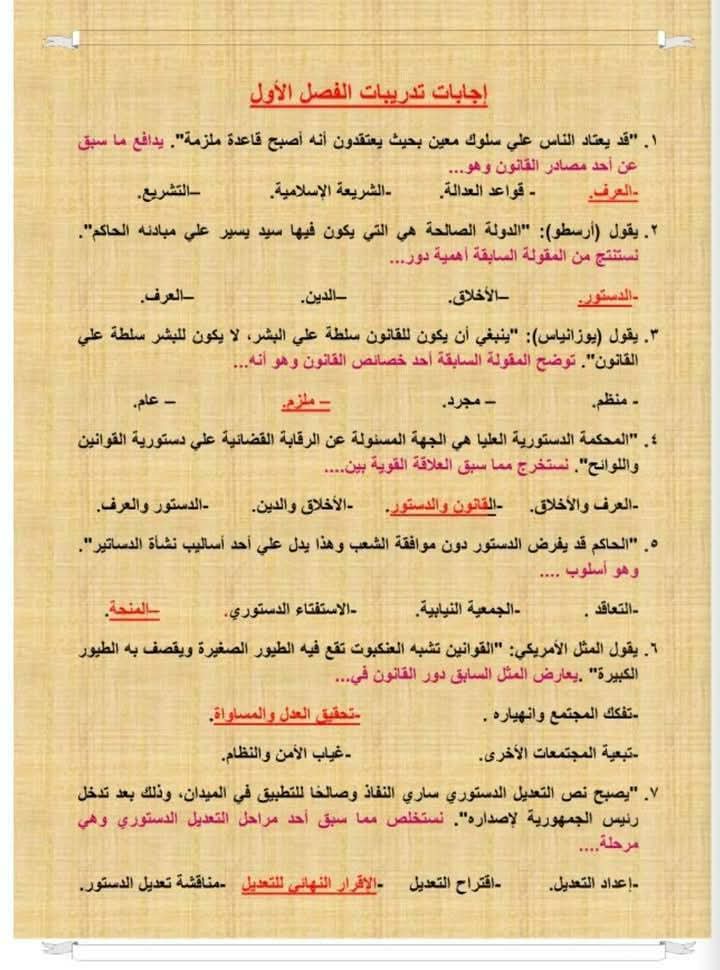 إجابات تدريبات الفصل الأول
١. "قد يعتاد الناس علي سلوك معين بحيث يعتقدون أنه أصبح قاعدة ملزمة". يدافع ما سبق
عن أحد مصادر القانون وهو...
-العرف. - قواعد العدالة. -الشريعة الإسلامية. –التشريع.
٢. يقول (أرسطو): "الدولة الصالحة هي التي يكون فيها سيد يسير علي مبادئه الحاكم".
نستنتج من المقولة السابقة أهمية دور...
-الدستور. –الأخلاق. –الدين. –العرف.
٣. يقول (يوزانياس): "ينبغي أن يكون للقانون سلطة علي البشر، لا يكون للبشر سلطة علي
القانون". توضح المقولة السابقة أحد خصائص القانون وهو أنه...
- منظم. – مجرد. – ملزم. – عام.
٤. "المحكمة الدستورية العليا هي الجهة المسئولة عن الرقابة القضائية علي دستورية القوانين
واللوائح". نستخرج مما سبق العلاقة القوية بين....
-العرف والأخلاق. -القانون والدستور. -الأخلاق والدين. -الدستور والعرف.
٥. "الحاكم قد يفرض الدستور دون موافقة الشعب وهذا يدل علي أحد أساليب نشأة الدساتير".
وهو أسلوب ....
-التعاقد . -الجمعية النيابية. -الاستفتاء الدستوري. –المنحة.
٦. يقول المثل الأمريكي: "القوانين تشبه العنكبوت تقع فيه الطيور الصغيرة ويقصف به الطيور
الكبيرة" .يعارض المثل السابق دور القانون في...
-تفكك المجتمع وانهياره . -تحقيق العدل والمساواة.
-تبعية المجتمعات الأخرى. -غياب الأمن والنظام.
٧. "يصبح نص التعديل الدستوري ساري النفاذ وصالحًا للتطبيق في الميدان، وذلك بعد تدخل
رئيس الجمهورية لإصداره". نستخلص مما سبق أحد مراحل التعديل الدستوري وهي
مرحلة....
-إعداد التعديل. -اقتراح التعديل -الإقرار النهائي للتعديل -مناقشة تعديل الدستور.